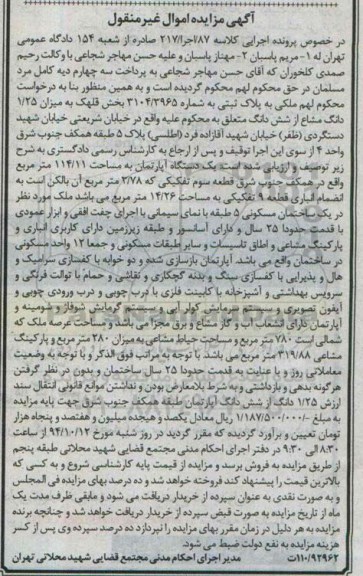 آگهی مزایده اموال غیرمنقول
در خصوص پرونده اجرایی کلاسه ۸۷/اجرا/۲۱۷ صادره از شعبه ۱۵۴ دادگاه عمومی
تهران له ۱- مریم پاسبان ۲- مهناز پاسبان و علیه حسن مهاجر شجاعی با وکالت رحیم
صمدی کلخوران که آقای حسن مهاجر شجاعی به پرداخت سه چهارم دیه کامل مرد
مسلمان در حق محکوم لهم محکوم گردیده است و به همین منظور بنا به درخواست
محکوم لهم ملکی به پلاک ثبتی به شماره ۳۱۰۴/۳۹۶۵ بخش قلهک به میزان ۱/۲۵
دانگ مشاع از شش دانگ متعلق به محکوم علیه واقع در خیابان شریعتی خیابان شهید
دستگردی (ظفر) خیابان شهید آقازاده فرد (اطلسی) پلاک ۵ طبقه همکف جنوب شرق
واحد ۴ از سوی این اجرا توقیف و پس از ارجاع به کارشناس رسمی دادگستری به شرح
زیر توصیف و ارزیابی شده است یک دستگاه آپارتمان به مساحت ۱۱۴/۱۱ متر مربع
واقع در همکف جنوب شرق قطعه سوم تفکیکی که ۳/۷۸ متر مربع آن بالکن است به
انضمام انباری قطعه ۹ تفکیکی به مساحت ۱۴/۲۶ متر مربع می باشد ملک مورد نظر
در یک ساختمان مسکونی ۵ طبقه با نمای سیمانی با اجرای چفت افقی و ابزار عمودی
با قدمت حدودا ۲۵ سال و دارای آسانسور و طبقه زیرزمین دارای کاربری انباری و
پارکینگ مشاعی و اطاق تاسیسات و سایر طبقات مسکونی و جمعا ۱۲ واحد مسکونی
در ساختمان واقع می باشد. آپارتمان بازسازی شده و دو خوابه با کفسازی سرامیک و
هال و پذیرایی با کفسازی سنگ و بدنه گچکاری و نقاشی و حمام با توالت فرنگی و
سرویس بهداشتی و آشپزخانه با کابینت فلزی با درب چوبی و درب ورودی چوبی و
آیفون تصویری و سیستم سرمایش کولر آبی و سیستم گرمایش شوفاژ و شومینه و
آپارتمان دارای انشعاب آب و گاز مشاع و برق مجزا می باشد و مساحت عرصه ملک که
شمالی است ۷۸۰ متر مربع و مساحت حیاط مشاعی به میزان ۲۸۰ متر مربع و پارکینگ
مشاعی ۳۱۹/۸۸ متر مربع می باشد با توجه به مراتب فوق الذکر و با توجه به وضعیت
معاملاتی روز و با عنایت به قدمت حدودا ۲۵ سال ساختمان و بدون در نظر گرفتن
هرگونه بدهی و بازداشتی و به شرط بلامعارض بودن و نداشتن موانع قانونی انتقال سند
ارزش ۱/۲۵ دانگ از شش دانگ آپارتمان طبقه همکف جنوب شرق جهت پایه مزایده
به مبلغ ۱/۱۸۷/۵۰۰/۰۰۰ ریال معادل یکصد و هیجده میلیون و هفتصد و پنجاه هزار
تومان تعیین و برآورد گردیده که مقرر گردید در روز شنبه مورخ ۹۴/۱۰/۱۲ از ساعت
۸:۳۰ الی ۹:۳۰ در دفتر اجرای احکام مدنی مجتمع قضایی شهید محلاتی طبقه پنجم
از طریق مزایده به فروش برسد و مزایده از قیمت پایه کارشناسی شروع و به کسی که
بالاترین قیمت را پیشنهاد کند فروخته خواهد شد و ده درصد بهای مزایده فی المجلس
و به صورت نقدی به عنوان سپرده از خریدار دریافت می شود و مابقی ظرف مدت یک
ماه از تاریخ مزایده به صورت قبض سپرده از خریدار دریافت خواهد شد و چنانچه برنده
مزایده به هر دلیل در زمان مقرر بهای مزایده را نپردازد ده درصد سپرده وی پس از کسر
هزینه مزایده به نفع دولت ضبط می شود.
۱۱۰/۹۲۹۶۲ت مدیر اجرای احکام مدنی مجتمع قضایی شهید محلاتی تهران